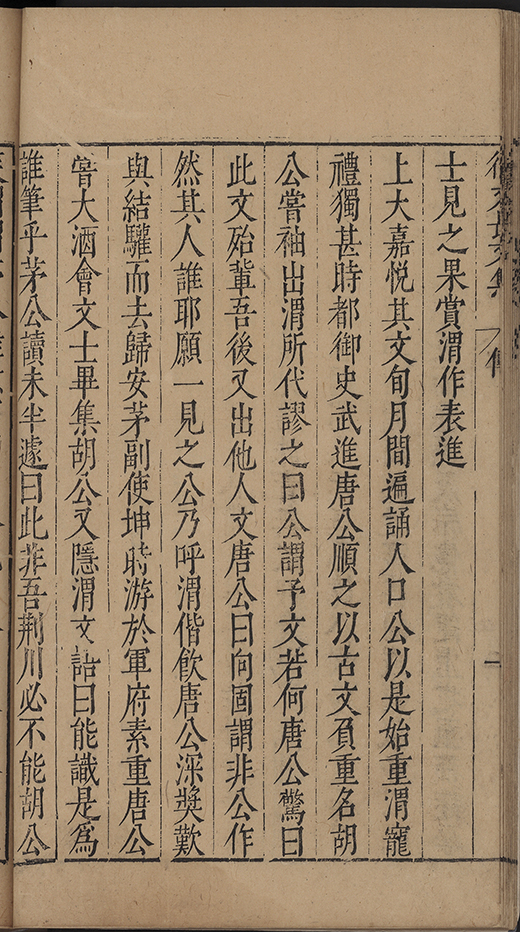 傳
一
士見之果賞渭作表進
上大嘉悅其文旬月間遍誦人口公以是始重渭寵
禮獨甚時都御史武進唐公順之以古文負重名胡
公嘗袖出渭所代謬之曰公謂予文若何唐公驚曰
此文殆輩吾後又出他人文唐公曰向固謂非公作
然其人誰耶願一見之公乃呼渭偕飲唐公深獎歎
與結驩而去歸安茅副使坤時游於軍府素重唐公
嘗大酒會文士畢集胡公又隱渭文語曰能識是爲
誰筆乎茅公讀未半遽曰此非吾荆川必不能胡公